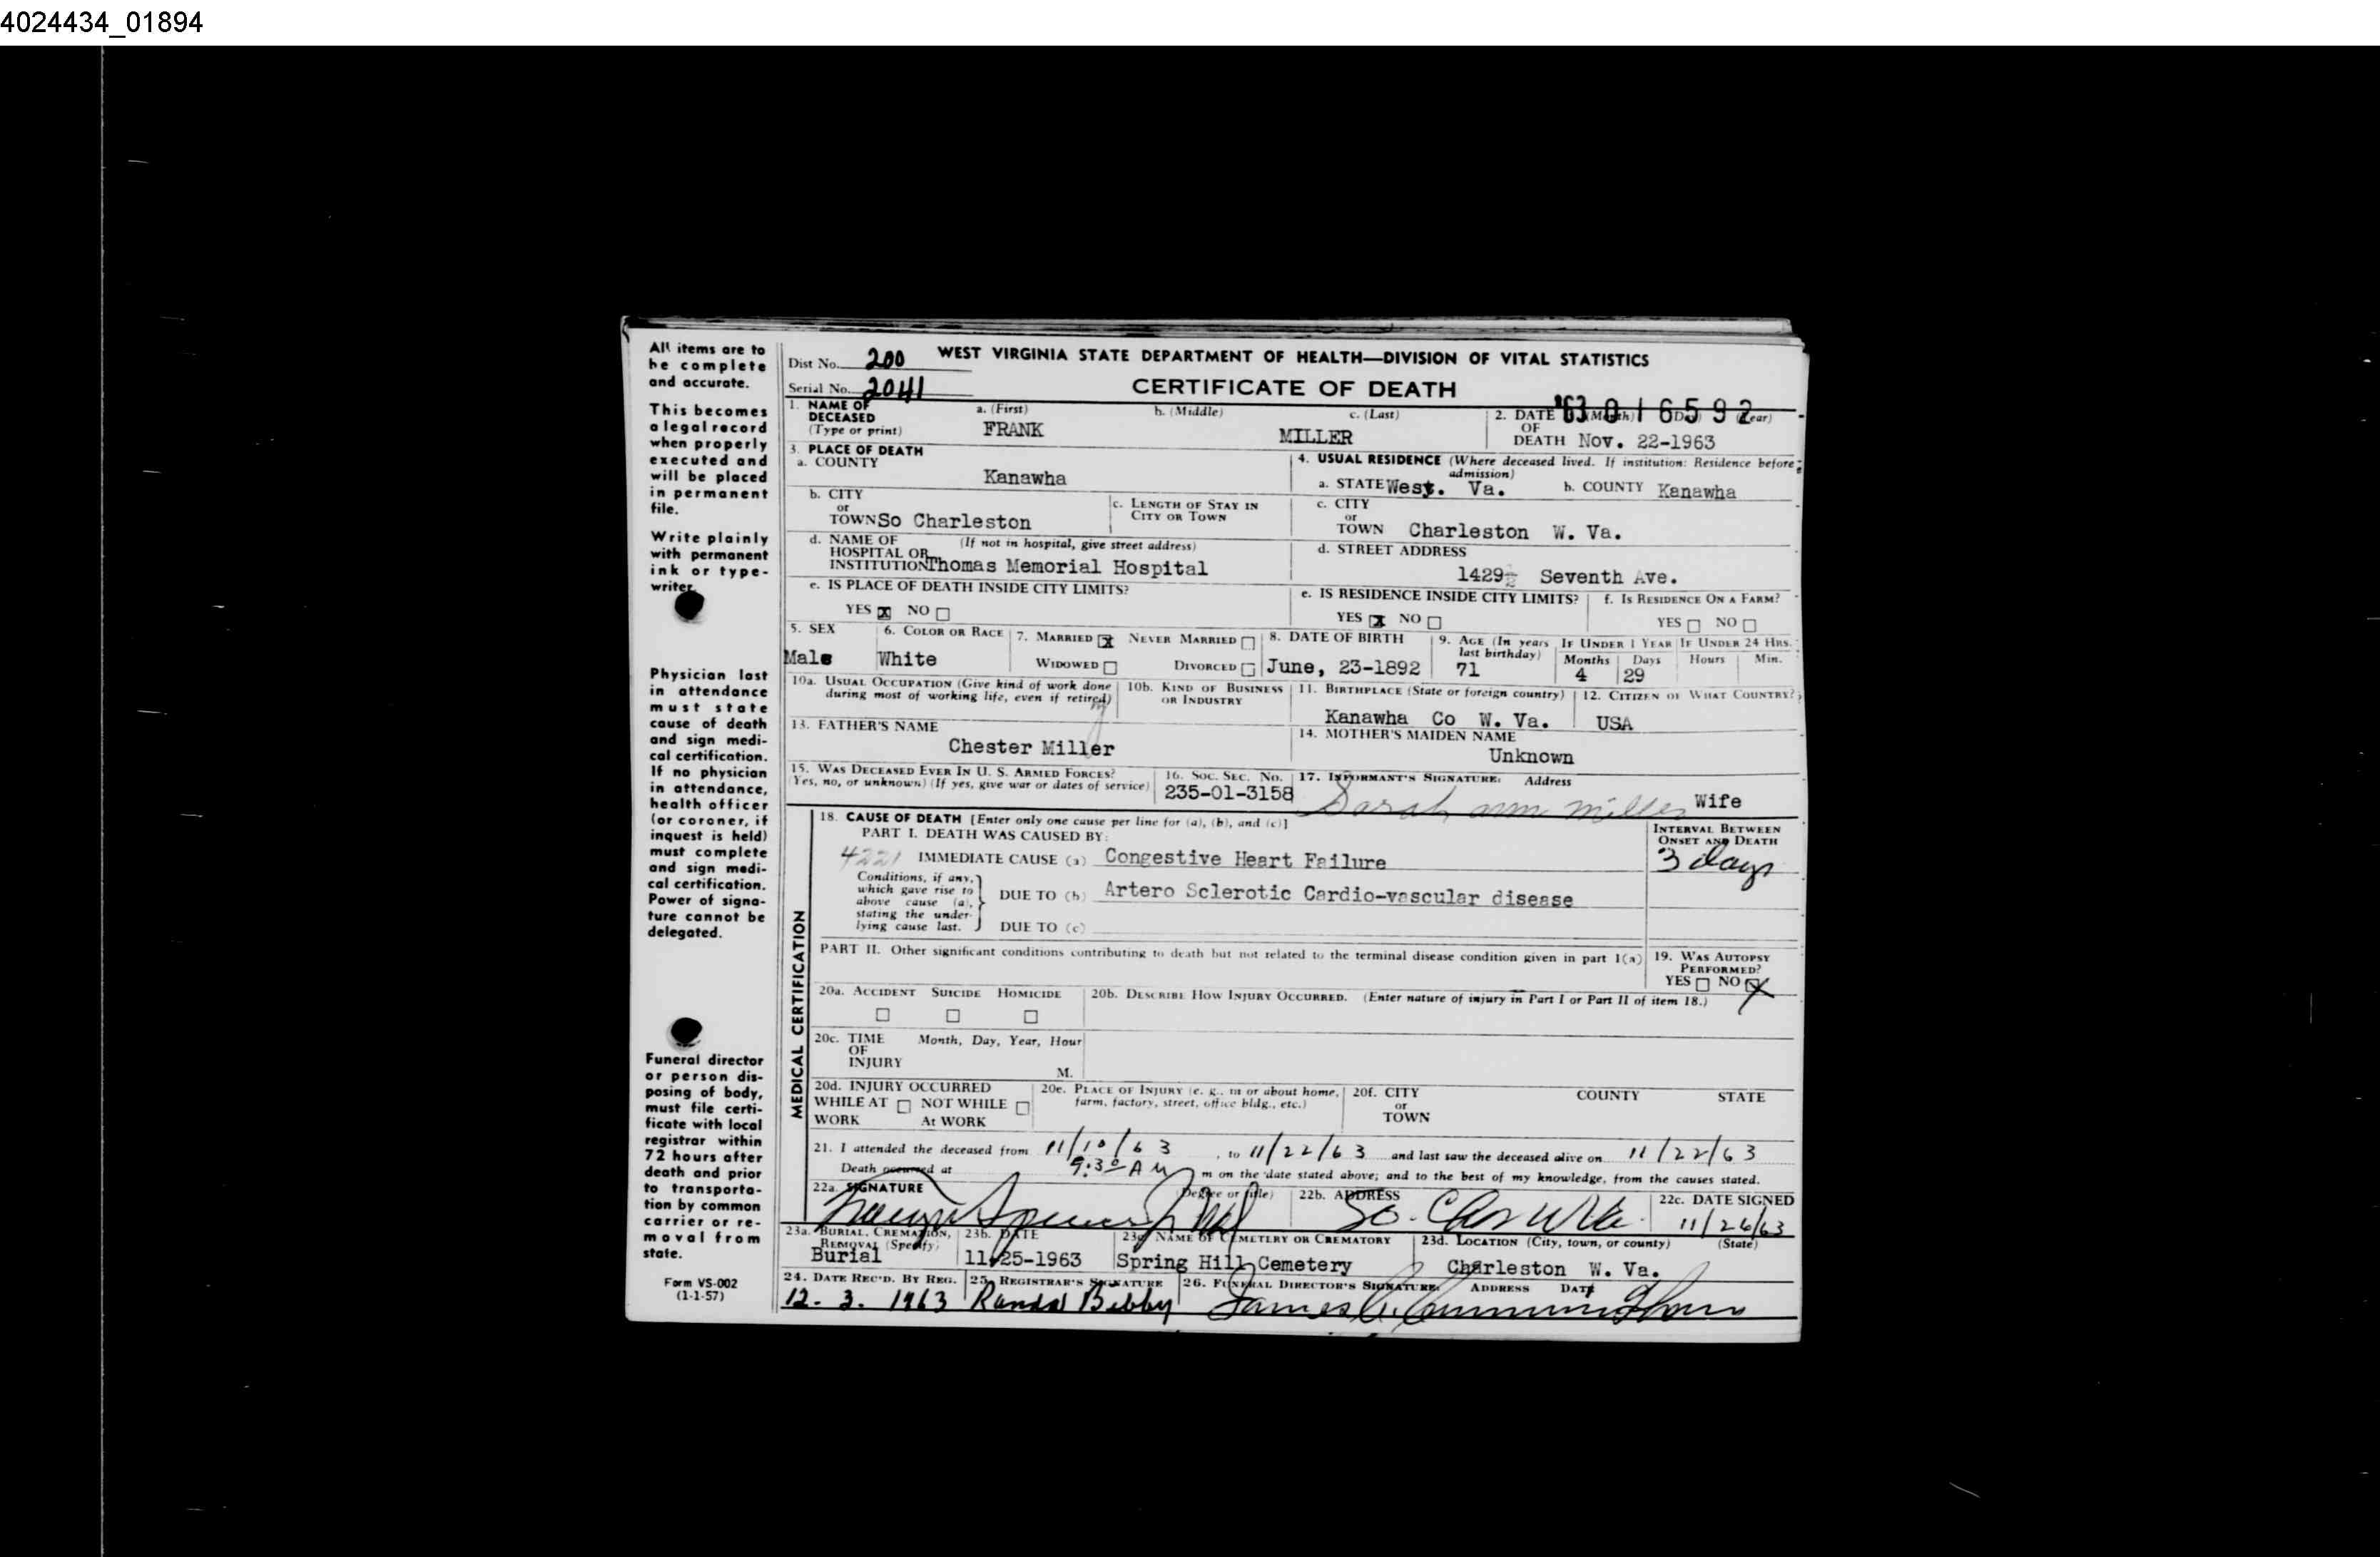 4024434_01894
All items are to
be complete
and accurate.
This becomes
a legal record
when properly
executed and
will be placed
in permanent
file.
Write plainly
with permanent
ink or type-
writer.
Physician last
in attendance
must state
cause of death
and sign medi-
cal certification.
If no physician
in attendance,
health officer
(or coroner, if
inquest is held)
must complete
and sign medi-
cal certification.
Power of signa-
ture cannot be
delegated.
Funeral director
or person dis-
posing of body,
must file certi-
ficate with local
registrar within
72 hours after
death and prior
to transporta-
tion by common
carrier or re-
moval from
state.
Form VS-002
(1-1-57)
Dist No. 200 WEST VIRGINIA STATE DEPARTMENT OF HEALTH—DIVISION OF VITAL STATISTICS
Serial No. 2041 CERTIFICATE OF DEATH
'63 016592
1. NAME OF DECEASED (Type or print) a. (First) b. (Middle) c. (Last)
FRANK MILLER
2. DATE OF DEATH (Month) (Day) (Year)
Nov. 22-1963
3. PLACE OF DEATH
a. COUNTY Kanawha
4. USUAL RESIDENCE (Where deceased lived. If institution: Residence before admission)
a. STATE West. Va. b. COUNTY Kanawha
b. CITY or TOWN So Charleston c. LENGTH OF STAY IN CITY OR TOWN
c. CITY or TOWN Charleston W. Va.
d. NAME OF HOSPITAL OR INSTITUTION (If not in hospital, give street address)
Thomas Memorial Hospital
d. STREET ADDRESS
1429½ Seventh Ave.
e. IS PLACE OF DEATH INSIDE CITY LIMITS?
YES X NO
e. IS RESIDENCE INSIDE CITY LIMITS? f. IS RESIDENCE ON A FARM?
YES X NO YES NO
5. SEX Male
6. COLOR OR RACE White
7. MARRIED X NEVER MARRIED
WIDOWED DIVORCED
8. DATE OF BIRTH June, 23-1892
9. AGE (In years last birthday) 71
IF UNDER 1 YEAR IF UNDER 24 HRS.
Months Days Hours Min.
4 29
10a. USUAL OCCUPATION (Give kind of work done during most of working life, even if retired)
10b. KIND OF BUSINESS OR INDUSTRY
11. BIRTHPLACE (State or foreign country) Kanawha Co W. Va.
12. CITIZEN OF WHAT COUNTRY? USA
13. FATHER'S NAME
Chester Miller
14. MOTHER'S MAIDEN NAME
Unknown
15. WAS DECEASED EVER IN U. S. ARMED FORCES?
(Yes, no, or unknown) (If yes, give war or dates of service)
16. SOC. SEC. No. 235-01-3158
17. INFORMANT'S SIGNATURE: Address
Sarah ann miller Wife
MEDICAL CERTIFICATION
18. CAUSE OF DEATH [Enter only one cause per line for (a), (b), and (c)]
PART I. DEATH WAS CAUSED BY:
INTERVAL BETWEEN ONSET AND DEATH
4221 IMMEDIATE CAUSE (a) Congestive Heart Failure 3 days
Conditions, if any, which gave rise to above cause (a), stating the under- lying cause last.
DUE TO (b) Artero Sclerotic Cardio-vascular disease
DUE TO (c)
PART II. Other significant conditions contributing to death but not related to the terminal disease condition given in part I(a)
19. WAS AUTOPSY PERFORMED?
YES NO X
20a. ACCIDENT SUICIDE HOMICIDE
20b. DESCRIBE HOW INJURY OCCURRED. (Enter nature of injury in Part I or Part II of item 18.)
20c. TIME OF INJURY Month, Day, Year, Hour
M.
20d. INJURY OCCURRED
WHILE AT WORK NOT WHILE At WORK
20e. PLACE OF INJURY (e. g., in or about home, farm, factory, street, office bldg., etc.)
20f. CITY or TOWN COUNTY STATE
21. I attended the deceased from 11/10/63, to 11/22/63 and last saw the deceased alive on 11/22/63
Death occurred at 9:30 AM m on the date stated above; and to the best of my knowledge, from the causes stated.
22a. SIGNATURE (Degree or title)
22b. ADDRESS So. Chas W Va.
22c. DATE SIGNED 11/26/63
23a. BURIAL, CREMATION, REMOVAL (Specify) Burial
23b. DATE 11-25-1963
23c. NAME OF CEMETERY OR CREMATORY Spring Hill Cemetery
23d. LOCATION (City, town, or county) (State)
Charleston W. Va.
24. DATE REC'D. BY REG. 12. 3. 1963
25. REGISTRAR'S SIGNATURE Bibby
26. FUNERAL DIRECTOR'S SIGNATURE: ADDRESS DATE
James Cunningham